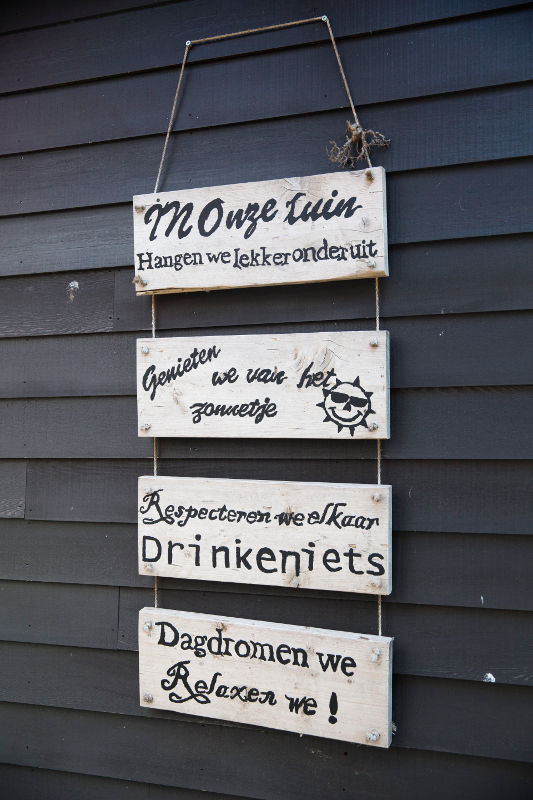 IN Onze tuin
Hangen we lekker onderuit
Genieten
we van het
zonnetje
Respecteren we elkaar
Drinken iets
Dagdromen we
Relaxen we !